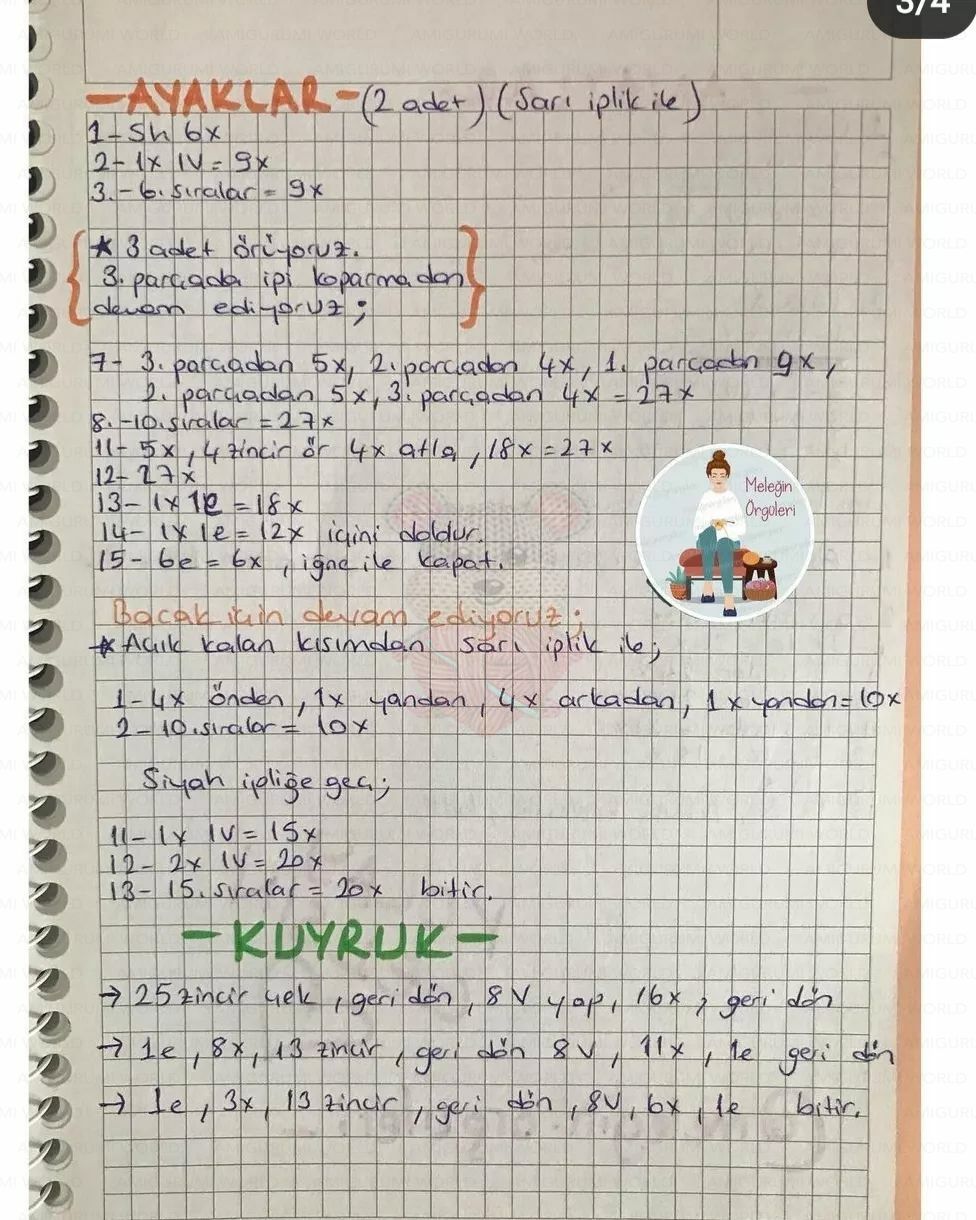 3/4
-AYAKLAR-(2 adet) (Sarı iplik ile)
1-Sh 6x
2-1x 1V = 9x
3.-6. sıralar = 9x
* 3 adet örüyoruz.
3. parçada ipi koparmadan
devam ediyoruz;
7- 3. parçadan 5x, 2. parçadan 4x, 1. parçadan 9x,
2. parçadan 5x, 3. parçadan 4x = 27x
8.-10. sıralar = 27x
11- 5x, 4 zincir ör 4x atla, 18x = 27x
12- 27x
13- 1x 1e = 18x
14- 1x 1e = 12x içini doldur.
15- 6e = 6x, iğne ile kapat.
Meleğin
Örgüleri
Bacak için devam ediyoruz;
* Açık kalan kısımdan sarı iplik ile;
1-4x önden, 1x yandan, 4x arkadan, 1x yandan = 10x
2-10. sıralar = 10x
Siyah ipliğe geç;
11- 1x 1V = 15x
12- 2x 1V = 20x
13-15. sıralar = 20x bitir.
-KUYRUK-
→ 25 zincir çek, geri dön, 8V yap, 16x, geri dön
→ 1e, 8x, 13 zincir, geri dön 8V, 11x, 1e geri dön
→ 1e, 3x, 13 zincir, geri dön, 8V, 6x, 1e bitir.